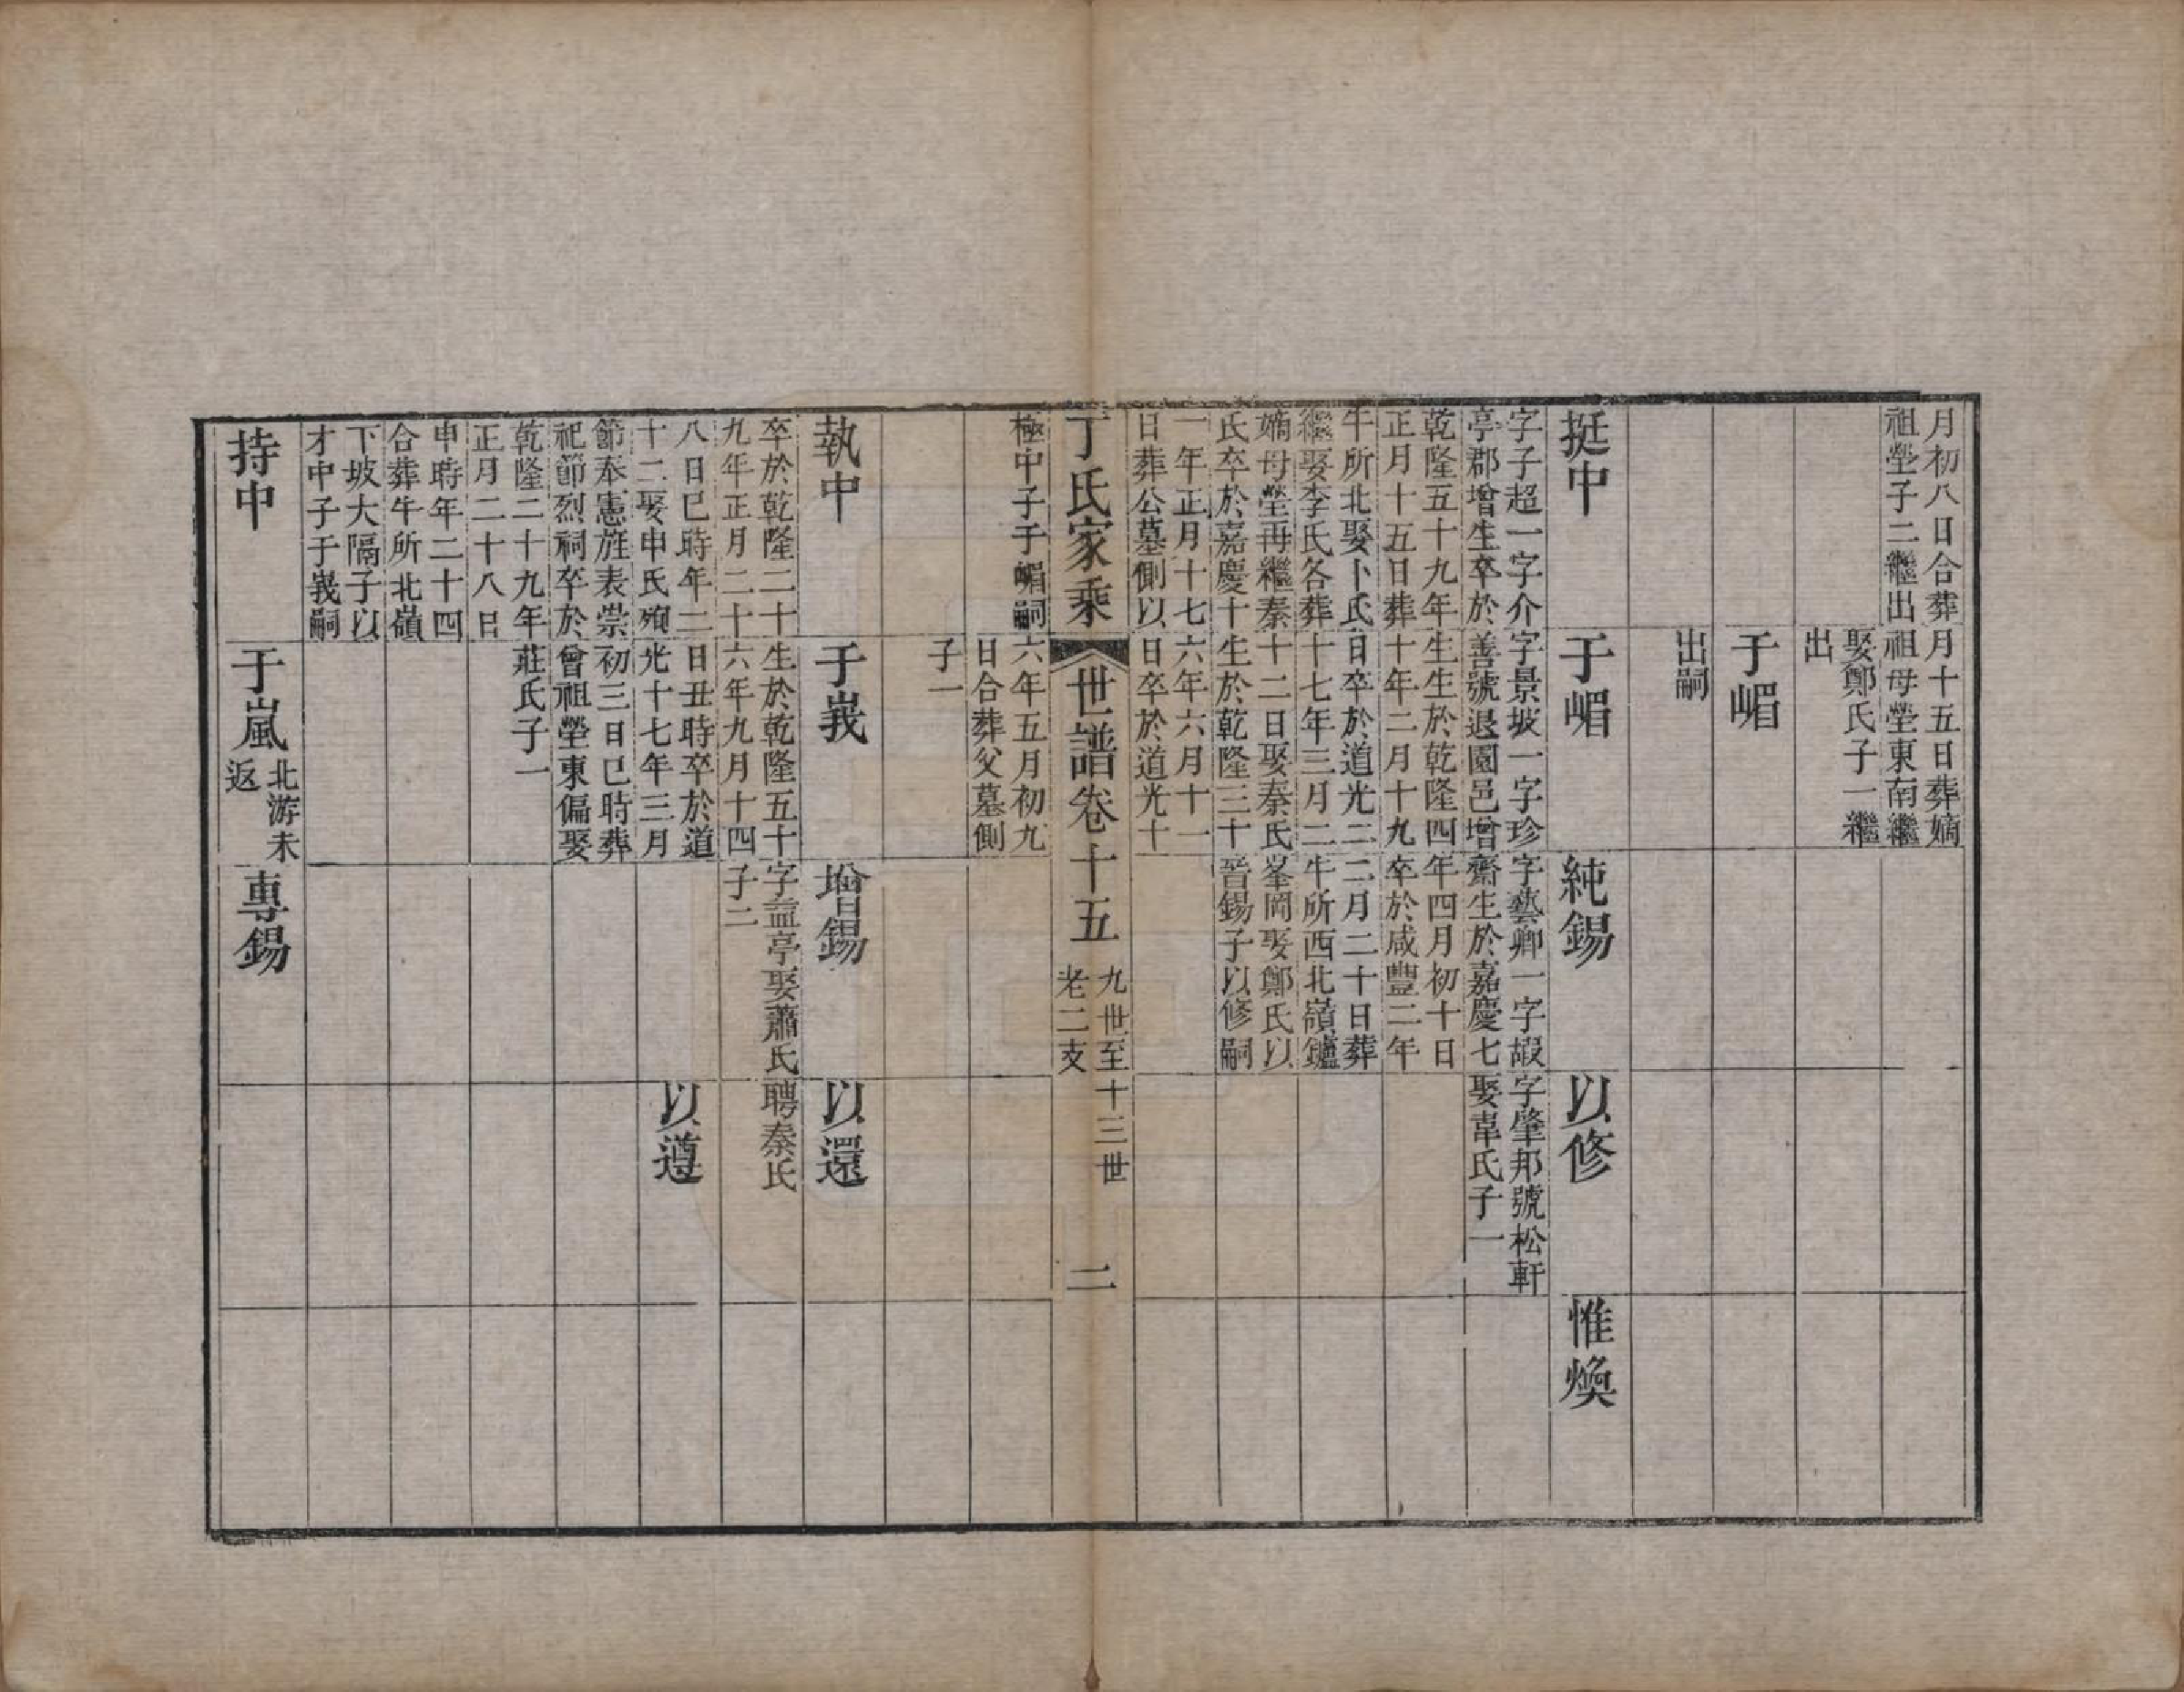 月初八日合葬
祖塋子二繼出
月十五日葬嫡
祖母塋東南繼
娶鄭氏子一繼
出
于嵋
出嗣
挺中
字子超一字介
亭郡增生卒於
乾隆五十九年
正月十五日葬
牛所北娶卜氏
繼娶李氏各葬
嫡母塋再繼秦
氏卒於嘉慶十
一年正月十七
日葬公墓側以
極中子于嵋嗣
于嵋
字景坡一字珍
善號退園邑增
生生於乾隆四
十年二月十九
日卒於道光二
十七年三月二
十二日娶秦氏
生於乾隆三十
六年六月十一
日卒於道光十
六年五月初九
日合葬父墓側
子一
純錫
字藝卿一字嘏
齋生於嘉慶七
年四月初十日
卒於咸豐二年
二月二十日葬
牛所西北嶺鑪
峯岡娶鄭氏以
晉錫子以修嗣
以修
字肇邦號松軒
娶韋氏子一
惟煥
丁氏家乘
世譜卷十五
九世至十三世
老二支
二
執中
卒於乾隆二十
九年正月二十
八日巳時年二
十二娶申氏殉
節奉憲旌表崇
祀節烈祠卒於
乾隆二十九年
正月二十八日
申時年二十四
合葬牛所北嶺
下坡大隔子以
才中子于峩嗣
于峩
生於乾隆五十
六年九月十四
日丑時卒於道
光十七年三月
初三日巳時葬
曾祖塋東偏娶
莊氏子一
增錫
字益亭娶蕭氏
子二
以還
聘秦氏
以遵
持中
于嵐
北游未
返
專錫